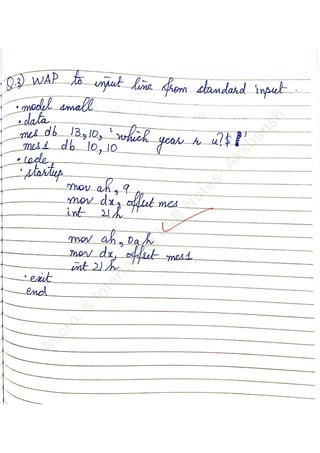 Q.3) WAP to input line from standard input.
.model small
.data
mes db 13,10, 'which year r u?$'
mes1 db 10,10
.code
.startup
mov ah, 9
mov dx, offset mes
int 21h
mov ah, 0ah
mov dx, offset mes1
int 21h
.exit
end